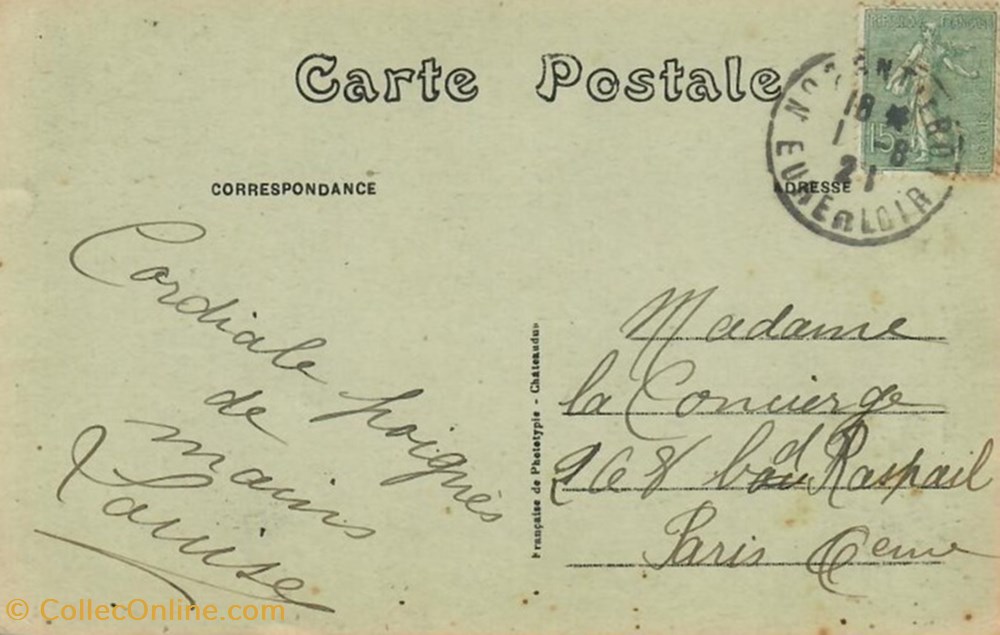 Carte Postale
CORRESPONDANCE
ADRESSE
REPUBLIQUE FRANÇAISE
15
18 *
1 8
21
EURE & LOIR
Cordiale poignés
de
mains
Louise
Française de Phototypie - Chateaudun
Madame
la Concierge
268 bd Raspail
Paris 6eme
© CollecOnline.com